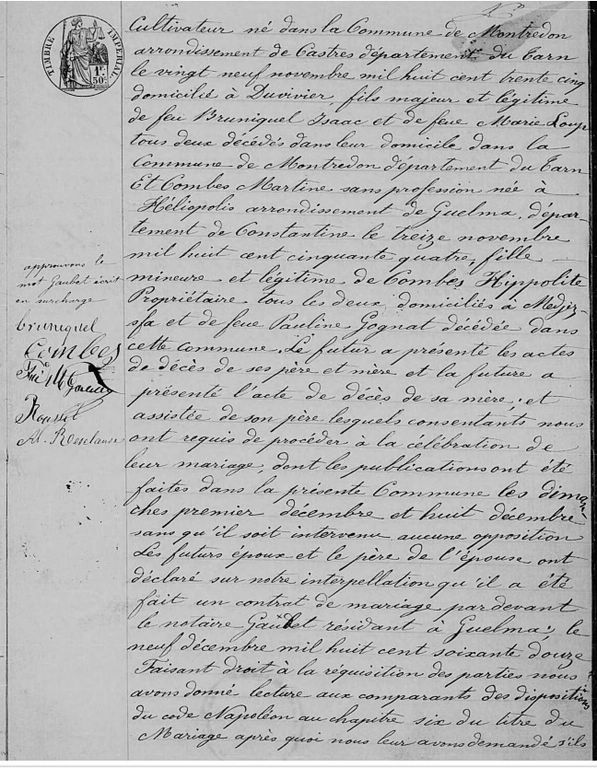 TIMBRE IMPERIAL
1F
50c
Cultivateur né dans la Commune de Montredon
arrondissement de Castres département du Tarn
le vingt neuf novembre mil huit cent trente cinq
domicilié à Duvivier, fils majeur et légitime
de feu Bruniquel Isaac et de feue Marie Loup
tous deux décédés dans leur domicile dans la
Commune de Montredon département du Tarn
Et Combes Martine sans profession née à
Héliopolis arrondissement de Guelma, dépar-
tement de Constantine le treize novembre
mil huit cent cinquante quatre, fille
mineure et légitime de Combes Hippolite
Propriétaire tous les deux domiciliés à Medjez-
sfa et de feue Pauline Gognat décédée dans
cette commune. Le futur a présenté les actes
de décès de ses père et mère et la future a
présenté l'acte de décès de sa mère, et
assistée de son père lesquels consentants nous
ont requis de procéder à la célébration de
leur mariage, dont les publications ont été
faites dans la présente Commune les diman
ches premier décembre et huit décembre
sans qu'il soit intervenu aucune opposition
Les futurs époux et le père de l'épouse ont
déclaré sur notre interpellation qu'il a été
fait un contrat de mariage pardevant
le notaire Gaubet résidant à Guelma, le
neuf décembre mil huit cent soixante douze
Faisant droit à la réquisition des parties nous
avons donné lecture aux comparants des dispositions
du code Napoléon au chapitre six du titre du
Mariage après quoi nous leur avons demandé s'ils
approuvons le
mot Gaubet écrit
en surcharge
bruniquel
Combes
Roussel